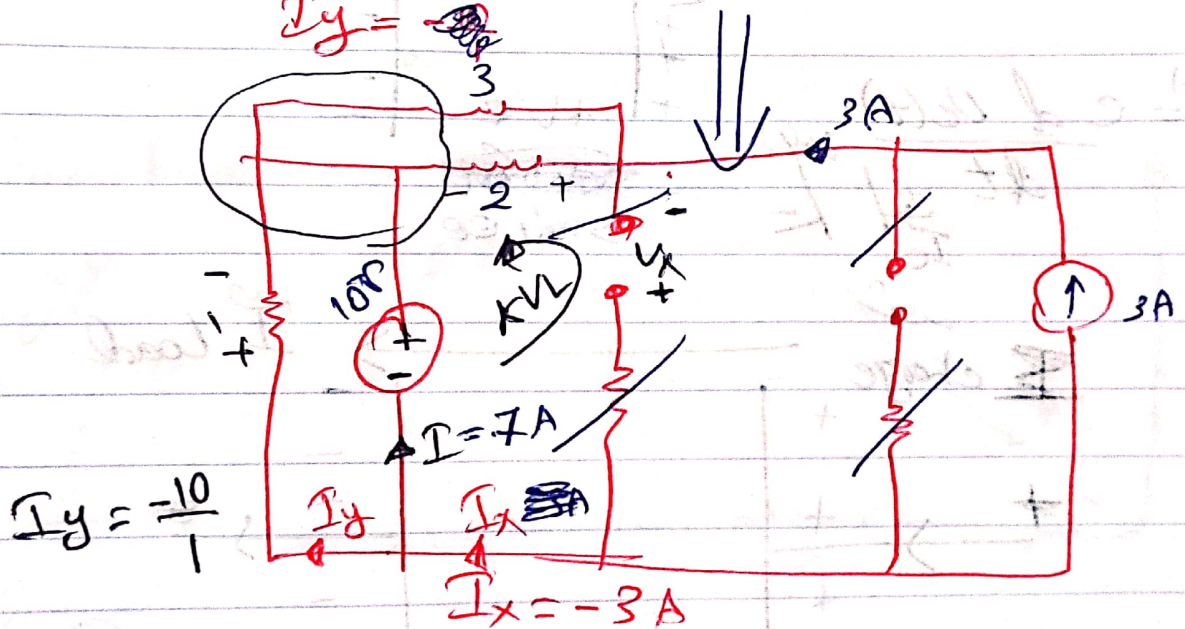 Iy =
3
3A
- 2 +
-
10V
Vx
+
KVL
-
+
+
-
3A
I = 7A
Iy = -10/1
Iy
Ix
Ix = -3A